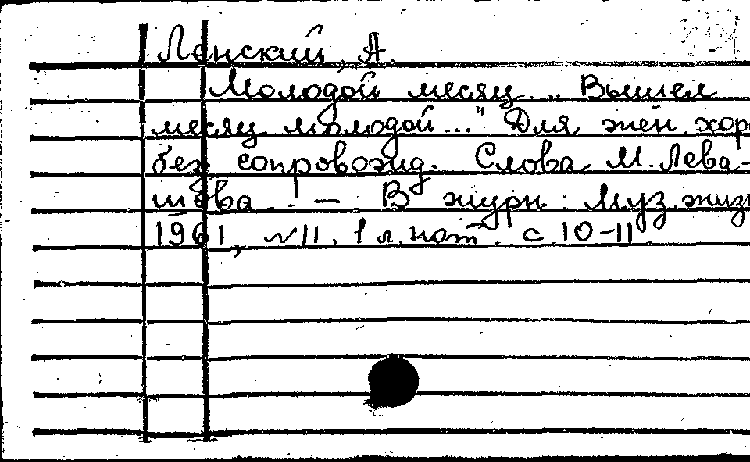 Ленский, А.
Молодой месяц. „Вышел
месяц молодой..." Для жен. хор
без сопровожд. Слова М. Лева-
шова. — В журн. Муз. жизн
1961, №11. 1 л. нот. с. 10-11.